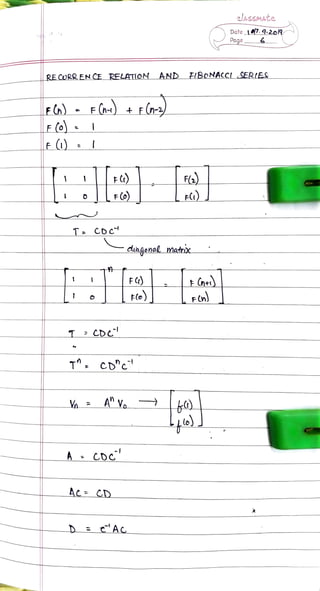 classmate
Date 17.9.2019
Page 6
RECURRENCE RELATION AND FIBONACCI SERIES
F(n) = F(n-1) + F(n-2)
F(0) = 1
F(1) = 1
[1 1; 1 0] [F(1); F(0)] = [F(2); F(1)]
T = CDC⁻¹
diagonal matrix
[1 1; 1 0]ⁿ [F(1); F(0)] = [F(n+1); F(n)]
T = CDC⁻¹
Tⁿ = CDⁿC⁻¹
Vₙ = Aⁿ V₀ → [f(1); f(0)]
A = CDC⁻¹
AC = CD
D = C⁻¹AC